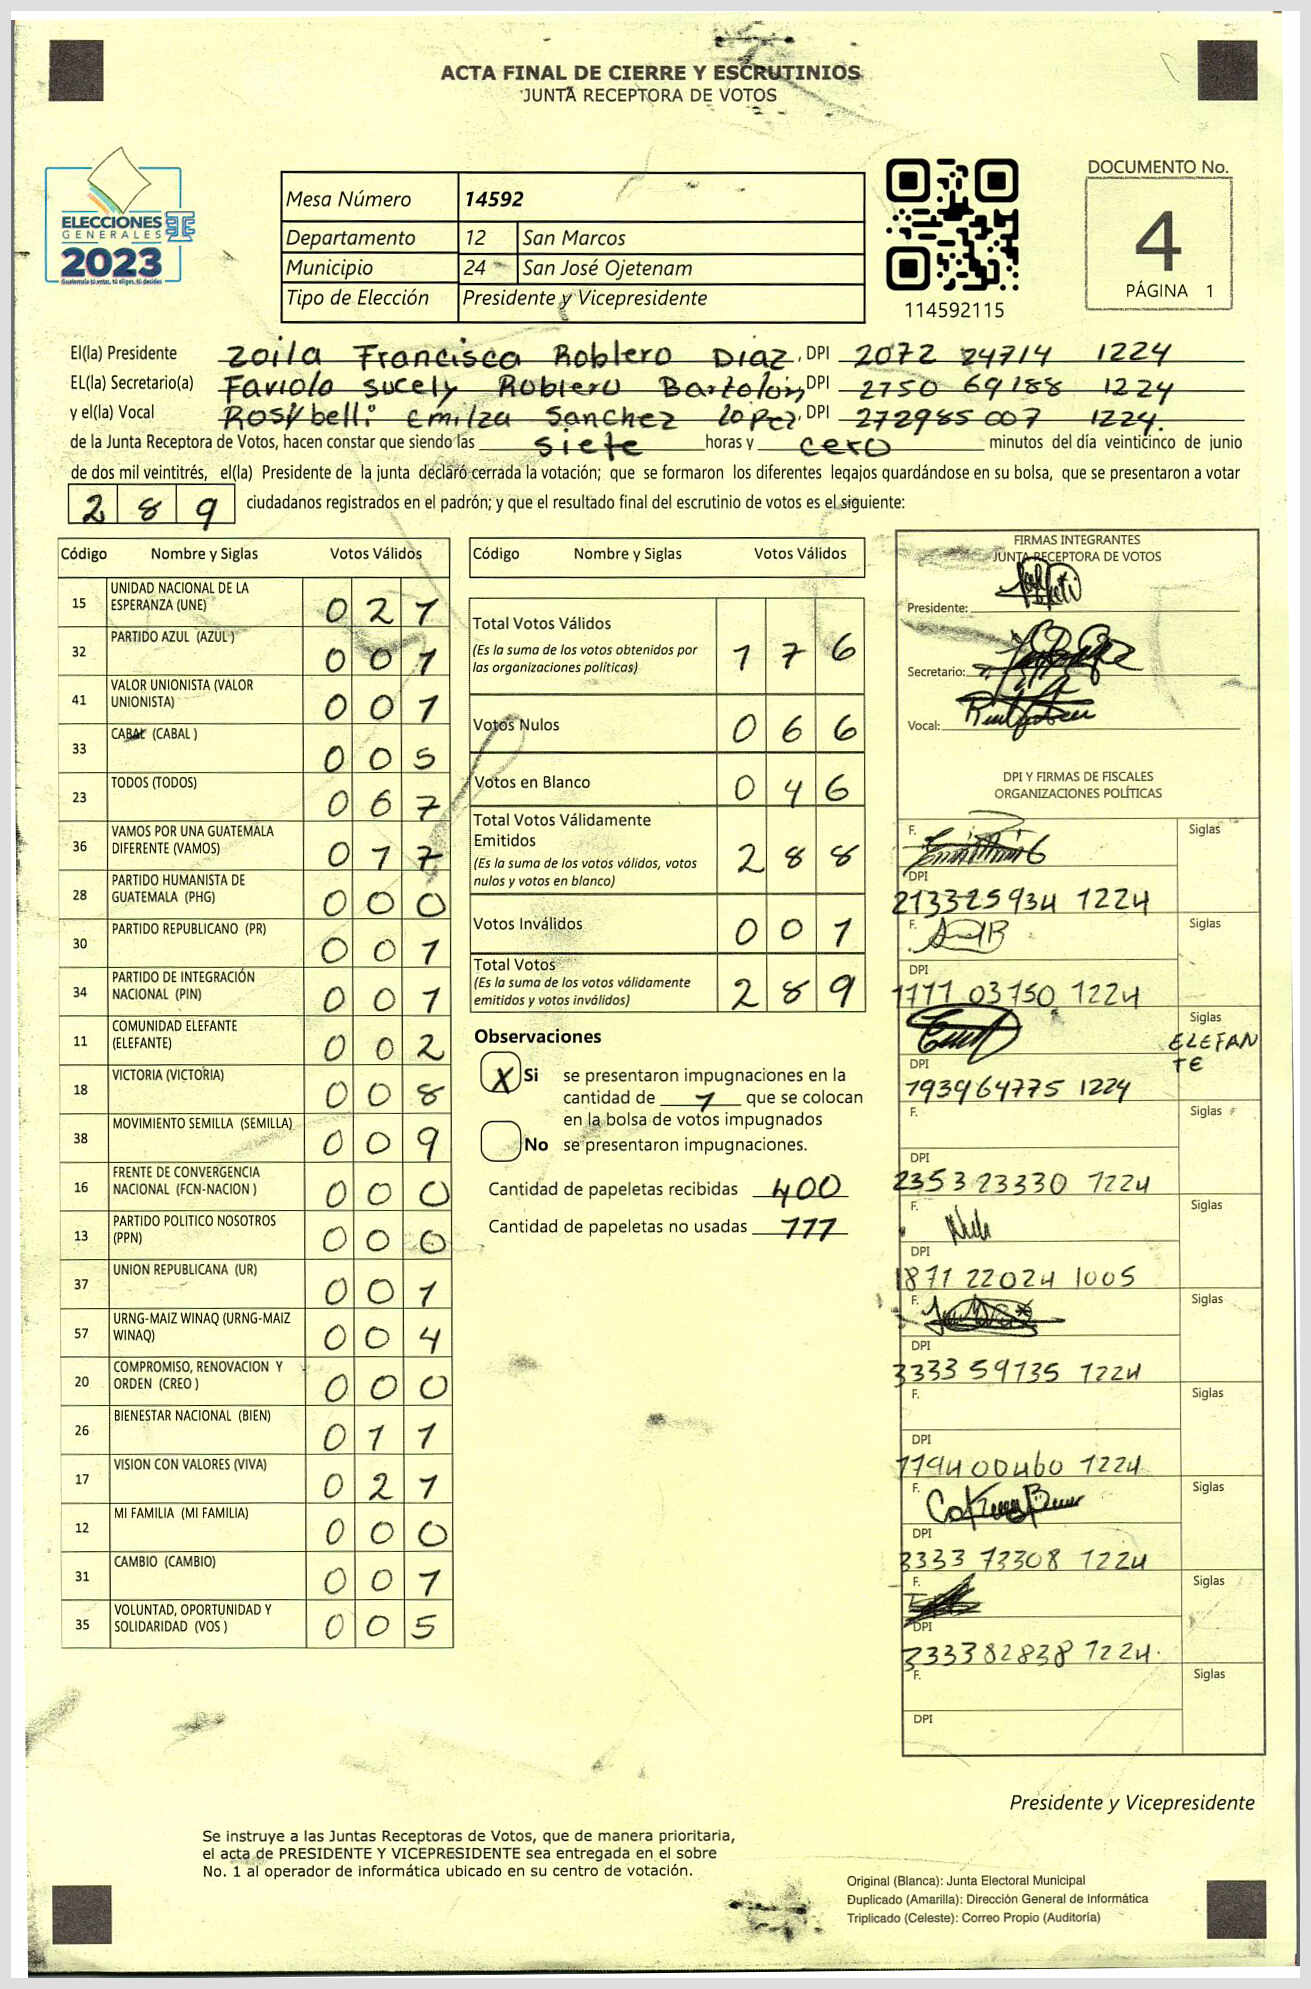 ACTA FINAL DE CIERRE Y ESCRUTINIOS
JUNTA RECEPTORA DE VOTOS
ELECCIONES
GENERALES
2023
Guatemala tú votas, tú eliges, tú decides
Mesa Número 14592
Departamento 12 San Marcos
Municipio 24 San José Ojetenam
Tipo de Elección Presidente y Vicepresidente
114592115
DOCUMENTO No.
4
PÁGINA 1
El(la) Presidente Zoila Francisca Roblero Diaz, DPI 2072 24714 1224
EL(la) Secretario(a) Faviola Sucely Roblero Bartolon, DPI 2750 69188 1224
y el(la) Vocal Rosybelli Emilza Sanchez lopez, DPI 272985007 1224.
de la Junta Receptora de Votos, hacen constar que siendo las siete horas y cero minutos del día veinticinco de junio
de dos mil veintitrés, el(la) Presidente de la junta declaró cerrada la votación; que se formaron los diferentes legajos guardándose en su bolsa, que se presentaron a votar
289 ciudadanos registrados en el padrón; y que el resultado final del escrutinio de votos es el siguiente:
Código Nombre y Siglas Votos Válidos
15 UNIDAD NACIONAL DE LA ESPERANZA (UNE) 021
32 PARTIDO AZUL (AZUL ) 001
41 VALOR UNIONISTA (VALOR UNIONISTA) 001
33 CABAL (CABAL ) 005
23 TODOS (TODOS) 067
36 VAMOS POR UNA GUATEMALA DIFERENTE (VAMOS) 017
28 PARTIDO HUMANISTA DE GUATEMALA (PHG) 000
30 PARTIDO REPUBLICANO (PR) 001
34 PARTIDO DE INTEGRACIÓN NACIONAL (PIN) 001
11 COMUNIDAD ELEFANTE (ELEFANTE) 002
18 VICTORIA (VICTORIA) 008
38 MOVIMIENTO SEMILLA (SEMILLA) 009
16 FRENTE DE CONVERGENCIA NACIONAL (FCN-NACION ) 000
13 PARTIDO POLITICO NOSOTROS (PPN) 000
37 UNION REPUBLICANA (UR) 001
57 URNG-MAIZ WINAQ (URNG-MAIZ WINAQ) 004
20 COMPROMISO, RENOVACION Y ORDEN (CREO ) 000
26 BIENESTAR NACIONAL (BIEN) 011
17 VISION CON VALORES (VIVA) 021
12 MI FAMILIA (MI FAMILIA) 000
31 CAMBIO (CAMBIO) 001
35 VOLUNTAD, OPORTUNIDAD Y SOLIDARIDAD (VOS ) 005
Código Nombre y Siglas Votos Válidos
Total Votos Válidos 176
(Es la suma de los votos obtenidos por
las organizaciones políticas)
Votos Nulos 066
Votos en Blanco 046
Total Votos Válidamente
Emitidos 288
(Es la suma de los votos válidos, votos
nulos y votos en blanco)
Votos Inválidos 001
Total Votos 289
(Es la suma de los votos válidamente
emitidos y votos inválidos)
Observaciones
X Si se presentaron impugnaciones en la
cantidad de 1 que se colocan
en la bolsa de votos impugnados
No se presentaron impugnaciones.
Cantidad de papeletas recibidas 400
Cantidad de papeletas no usadas 111
FIRMAS INTEGRANTES
JUNTA RECEPTORA DE VOTOS
Presidente:
Secretario:
Vocal:
DPI Y FIRMAS DE FISCALES
ORGANIZACIONES POLÍTICAS
F. Siglas
DPI
213325934 1224
F. Siglas
DPI
1717 03750 1224
Siglas
ELEFANTE
DPI
193964775 1224
F. Siglas
DPI
2353 23330 1224
F. Siglas
DPI
1871 22024 1005
F. Siglas
DPI
3333 59735 1224
F. Siglas
DPI
1794 00460 1224
F. Siglas
DPI
3333 73308 1224
F. Siglas
DPI
333382838 1224.
F. Siglas
DPI
Presidente y Vicepresidente
Se instruye a las Juntas Receptoras de Votos, que de manera prioritaria,
el acta de PRESIDENTE Y VICEPRESIDENTE sea entregada en el sobre
No. 1 al operador de informática ubicado en su centro de votación.
Original (Blanca): Junta Electoral Municipal
Duplicado (Amarilla): Dirección General de Informática
Triplicado (Celeste): Correo Propio (Auditoría)